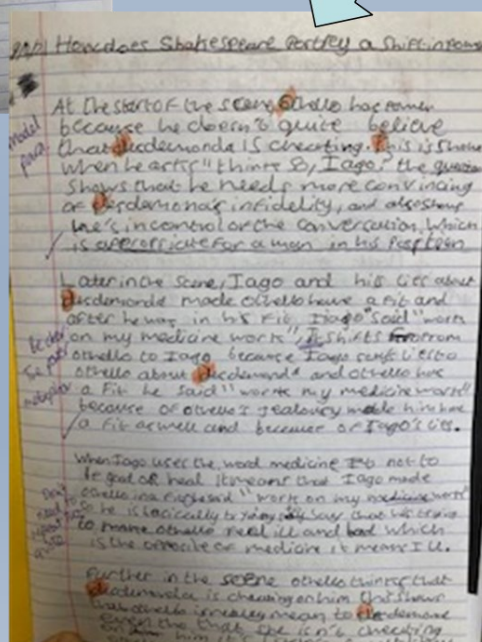 How does Shakespeare Portrey a shift in Power
At the start of the scene Othello has power
because he doesn't quite believe
that desdemona is cheating. This is shown
when he asks "thinks so, Iago?" the question
shows that he needs more convincing
of Desdemona's infidelity, and
he's in control of the conversation. Which
is approriate for a man in his Position
Later in the scene, Iago and his lies about
desdemona made othello have a fit and
after he was in his fit Iago said "work
on my medicine work", It shifts from
othello to Iago because Iago lies to
othello about desdemona and othello has
a fit he said "work my medicine work"
because of othello's jealousy made him have
a fit as well and because of Iago's lies.
model
para
When Iago uses the word medicine It's not to
be good or heal it means that Iago made
othello in a fit he said "work on my medicine work"
so he is basically trying say that his trying
to make othello feel ill and bad which
is the opposite of medicine it means Ill.
Further in the scene othello thinks that
desdemonda is cheating on him this shows
that othello is really mean to desdemona
even tho that she isn't cheating